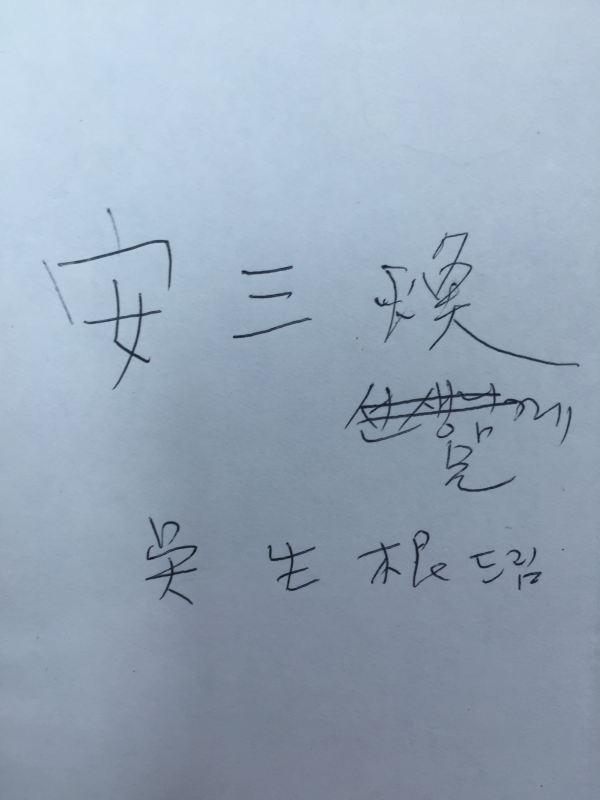 安 三 煥
선생님께
兄
吳 生 根 드림